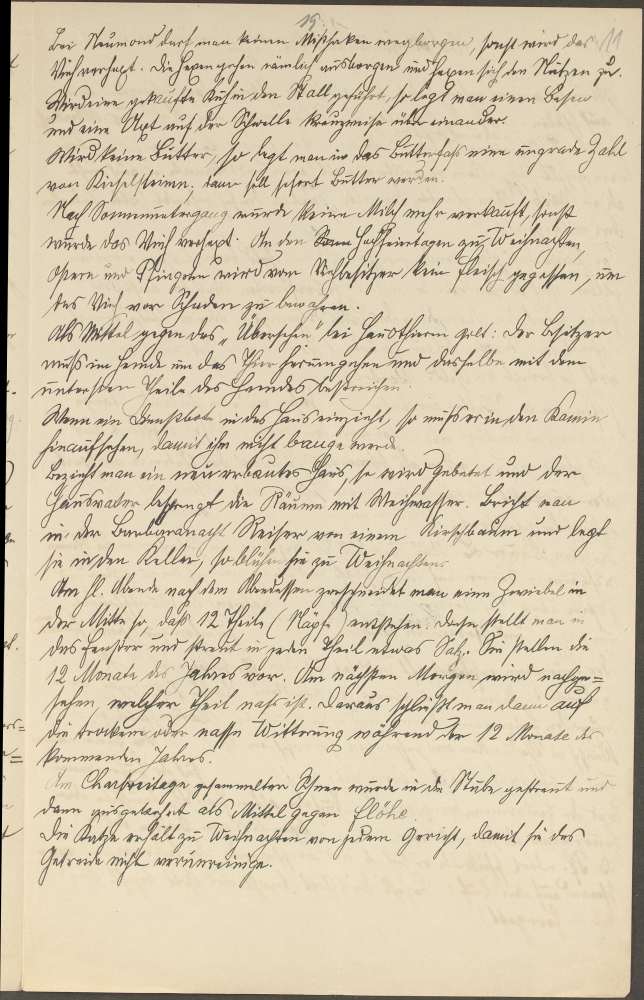 19.
11
Bei Neumond darf man keinen Misthaken wegborgen, sonst wird das
Vieh verhext. Die Hexen gehen nämlich ausborgen und hexen sich den Nutzen zu.
Wird eine gekaufte Kuh in den Stall geführt, so legt man einen Besen
und eine Axt auf der Schwelle kreuzweise über einander.
Wird keine Butter, so legt man in das Butterfaß eine ungrade Zahl
von Kieselsteinen; dann soll sofort Butter werden.
Nach Sonnenuntergang wurde keine Milch mehr verkauft, sonst
wurde das Vieh verhext. An den Hochfeiertagen zu Weihnachten,
Ostern und Pfingsten wird vom Viehbesitzer kein Fleisch gegessen, um
das Vieh vor Schaden zu bewahren.
Als Mittel gegen das „Übersehen" bei Haustieren gilt: Der Besitzer
muß im Hemde um das Thier herumgehen und dasselbe mit dem
untersten Theile des Hemdes bestreichen.
Wenn ein Dienstbote in das Haus einzieht, so muß er in den Kamin
hinaufsehen, damit ihm nicht bange werde.
Bezieht man ein neu erbautes Haus, so wird gebetet und der
Hausvater besprengt die Räume mit Weihwasser. Bricht man
in der Barbaranacht Reiser von einem Kirschbaum und legt
sie in den Keller, so blühen sie zu Weihnachten.
Am hl. Abende nach dem Abendessen zerschneidet man eine Zwiebel in
der Mitte so, daß 12 Theile (Näpfe) entstehen. Dann stellt man in
das Fenster und streut in jeden Theil etwas Salz. Sie stellen die
12 Monate des Jahres vor. Am nächsten Morgen wird nachge=
sehen, welcher Theil naß ist. Daraus schließt man dann auf
die trockene oder nasse Witterung während der 12 Monate des
kommenden Jahres.
Am Charfreitage gesammelter Schnee wurde in die Stube gestreut und
dann ausgekehrt als Mittel gegen Flöhe.
Die Katze erhält zu Weihnachten von jedem Gericht, damit sie das
Getreide nicht verunreinige.